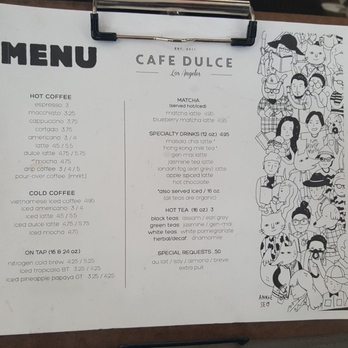 MENU
EST. 2011
CAFE DULCE
Los Angeles
HOT COFFEE
espresso 3
macchiato 3.25
cappuccino 3.75
cortado 3.75
americano 3 / 4
latte 4.5 / 5.5
dulce latte 4.75 / 5.75
*mocha 4.75
drip coffee 3 / 4 / 5
pour-over coffee (mrkt)
COLD COFFEE
vietnamese iced coffee 4.90
iced americano 3 / 4
iced latte 4.5 / 5.5
iced dulce latte 4.75 / 5.75
iced mocha 4.75
ON TAP (16 & 24 oz.)
nitrogen cold brew 4.25 / 5.25
iced tropicalia BT 3.25 / 4.25
iced pineapple papaya GT 3.25 / 4.25
MATCHA
(served hot/iced)
matcha latte 4.95
blueberry matcha latte 4.95
SPECIALTY DRINKS (12 oz.) 4.95
masala chai latte*
hong kong milk tea*
gen mai latte
jasmine tea latte
london fog (earl grey) latte
apple spiced latte
hot chocolate
*also served iced / 16 oz.
all teas are organic
HOT TEA (16 oz.) 3
black teas assam / earl grey
green teas jasmine / gen-mai
white teas white pomegranate
herbal/decaf chamomile
SPECIAL REQUESTS .50
au lait / soy / almond / breve
extra pull